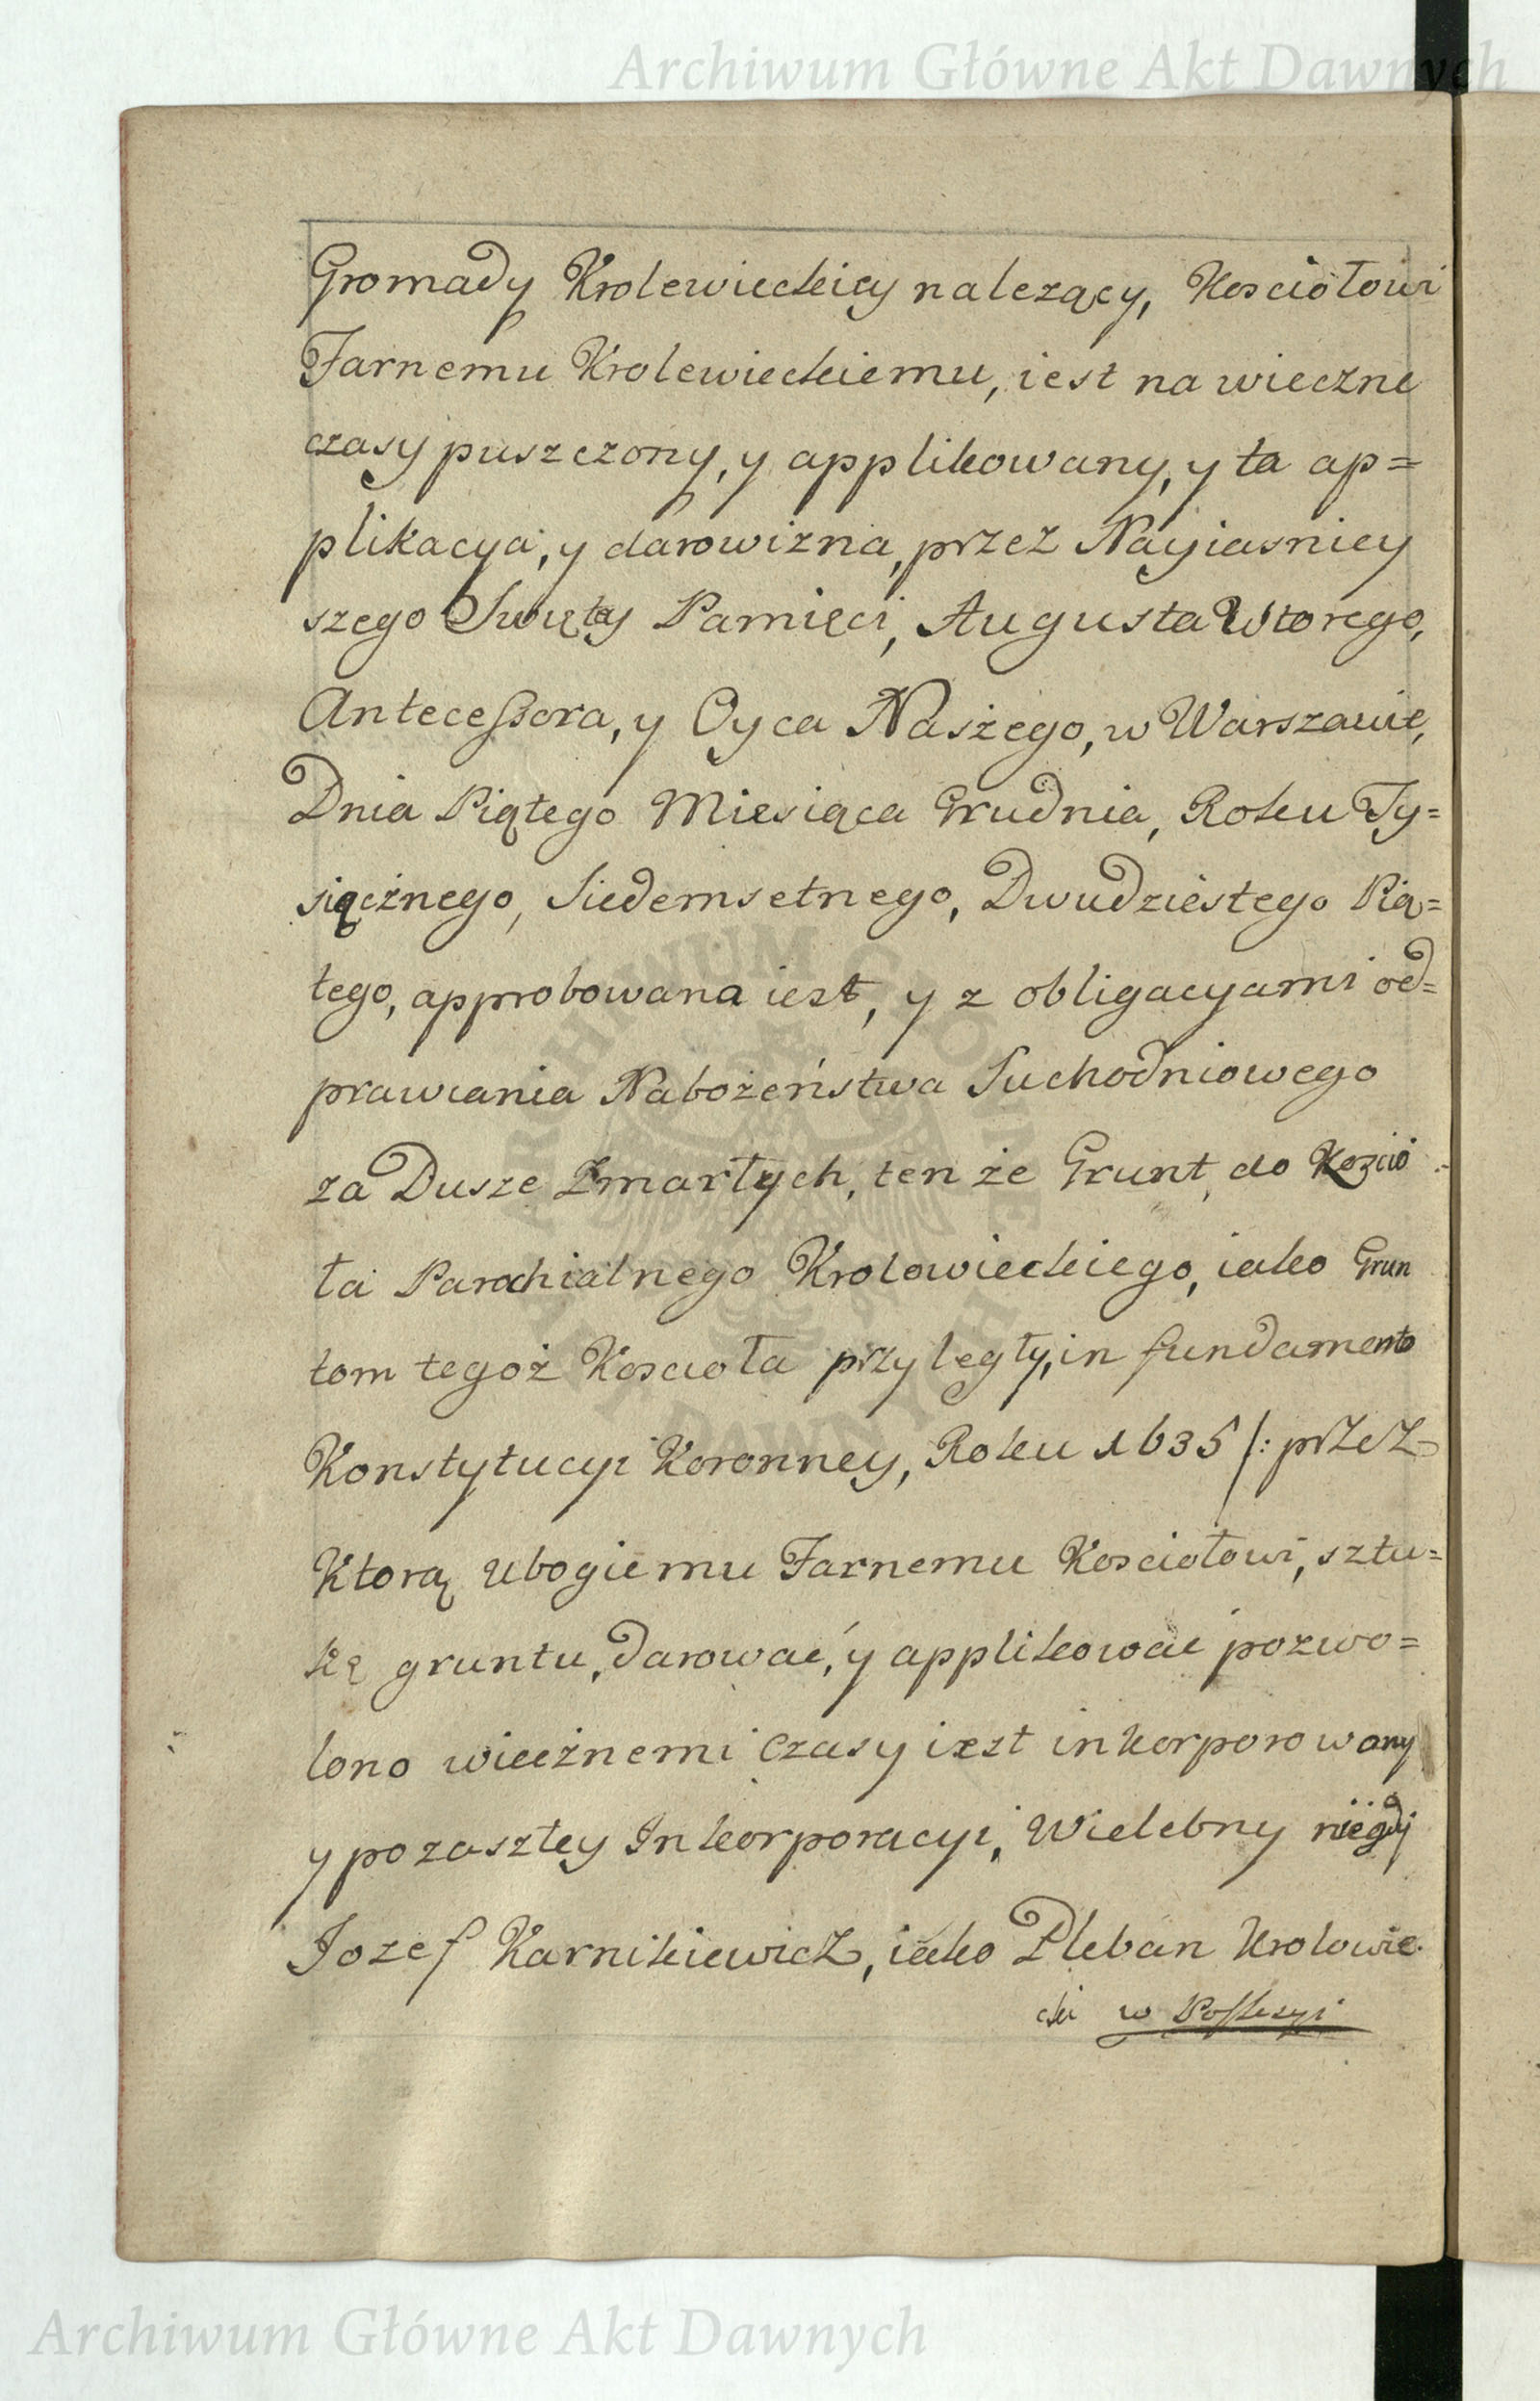 Archiwum Główne Akt Dawnych
Gromady Krolewieckiey nalezący, Kosciołowi
Farnemu Krolewieckiemu, iest na wieczne
czasy puszczony, y applikowany, y ta ap=
plikacya, y darowizna, przez Nayiasniey
szego Swiętey Pamięci, Augusta Wtorego,
Antecessora, y Oyca Naszego, w Warszawie,
Dnia Piątego Miesiąca Grudnia, Roku Ty=
siącznego, Siedemsetnego, Dwudziestego Pią=
tego, approbowana iest, y z obligacyami od=
prawiania Nabożeństwa Suchodniowego
za Dusze Zmarłych, ten że Grunt, do Koscio
ła Parochialnego Krolowieckiego, iako Grun
tom tegoż Koscioła przyległy, in fundamento
Konstytucyi Koronney, Roku 1635 /: przez
Ktorą Ubogiemu Farnemu Kosciołowi, sztu=
kę gruntu, darować, y applikować pozwo=
lono wiecznemi czasy iest inkorporowany
y po zaszłey Inkorporacyi, Wielebny niegdy
Jozef Karnikiewicz, iako Pleban Krolowie
cki w Possesyi
ARCHIWUM GŁÓWNE AKT DAWNYCH
Archiwum Główne Akt Dawnych